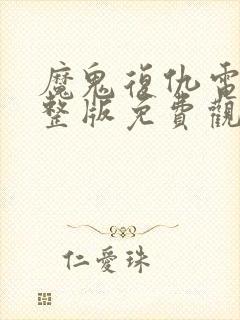 魔鬼復仇電
整版免費觀
仁愛珠